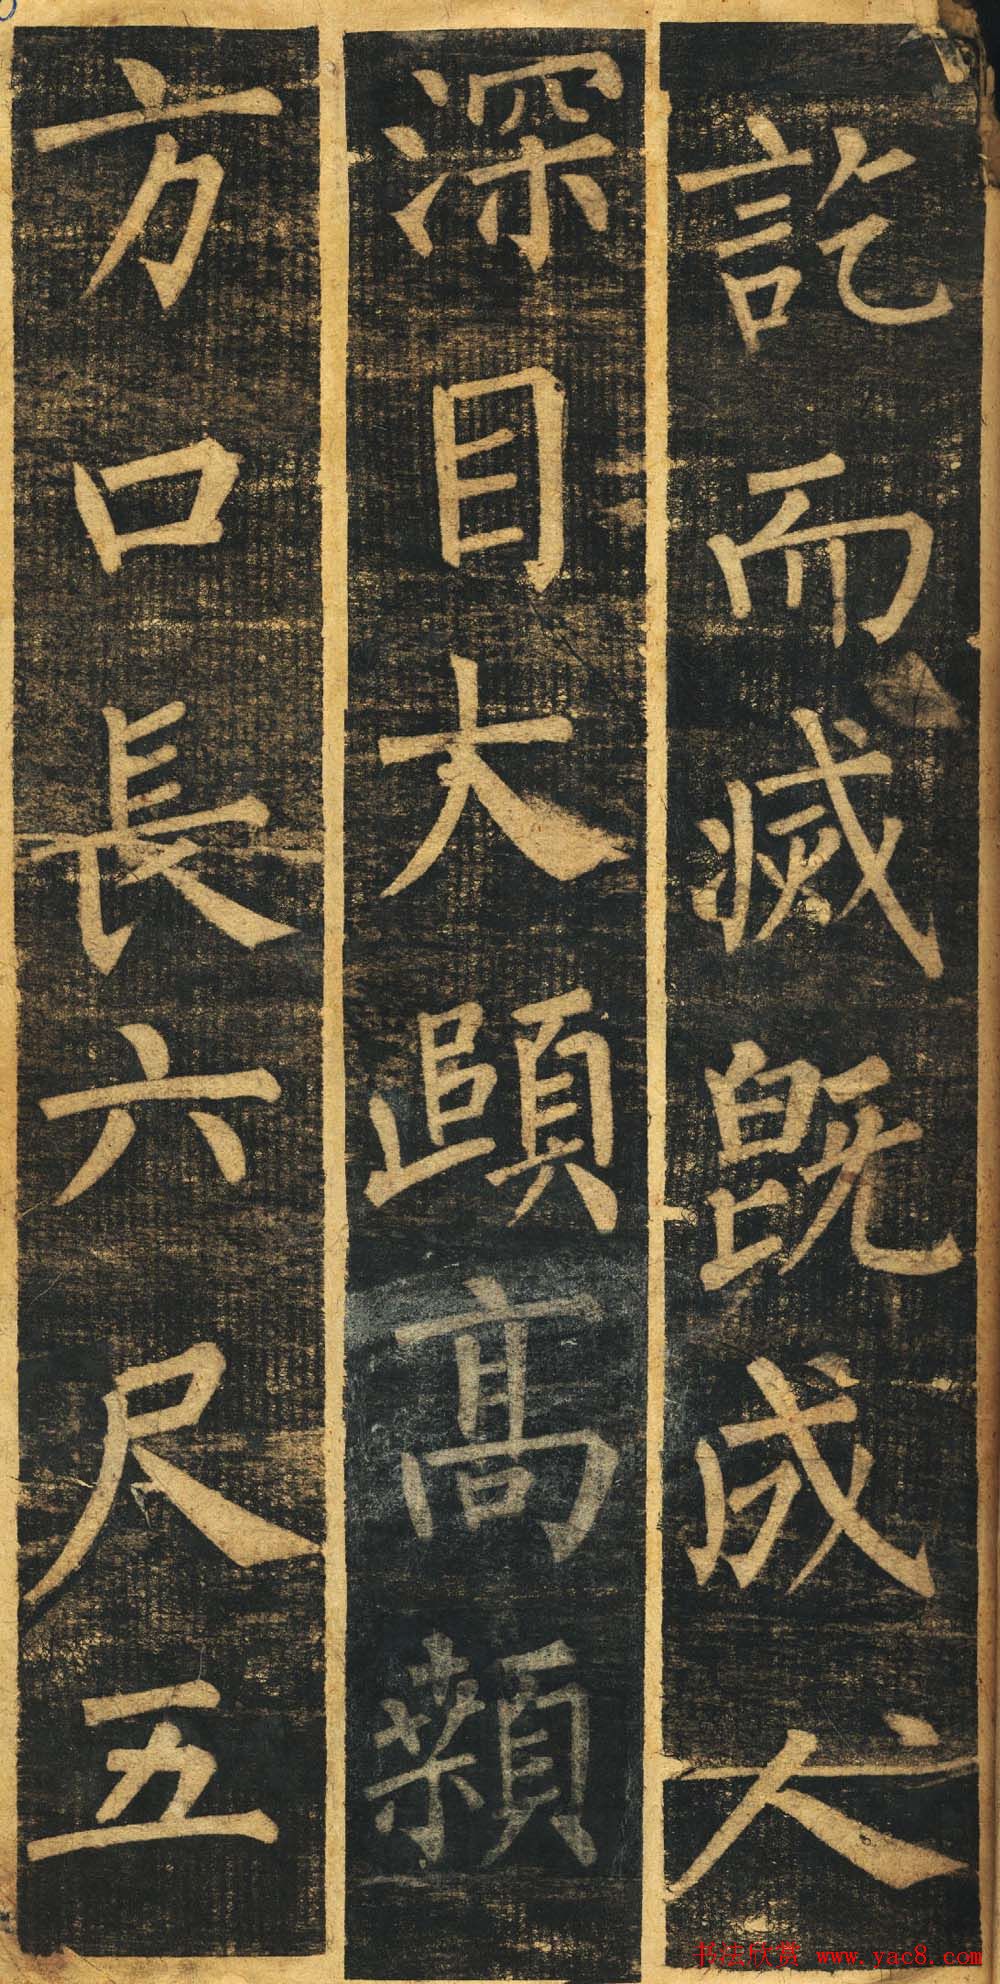 訖而滅既成人
深目大頤髙顙
方口長六尺五
书法欣赏 www.yac8.com